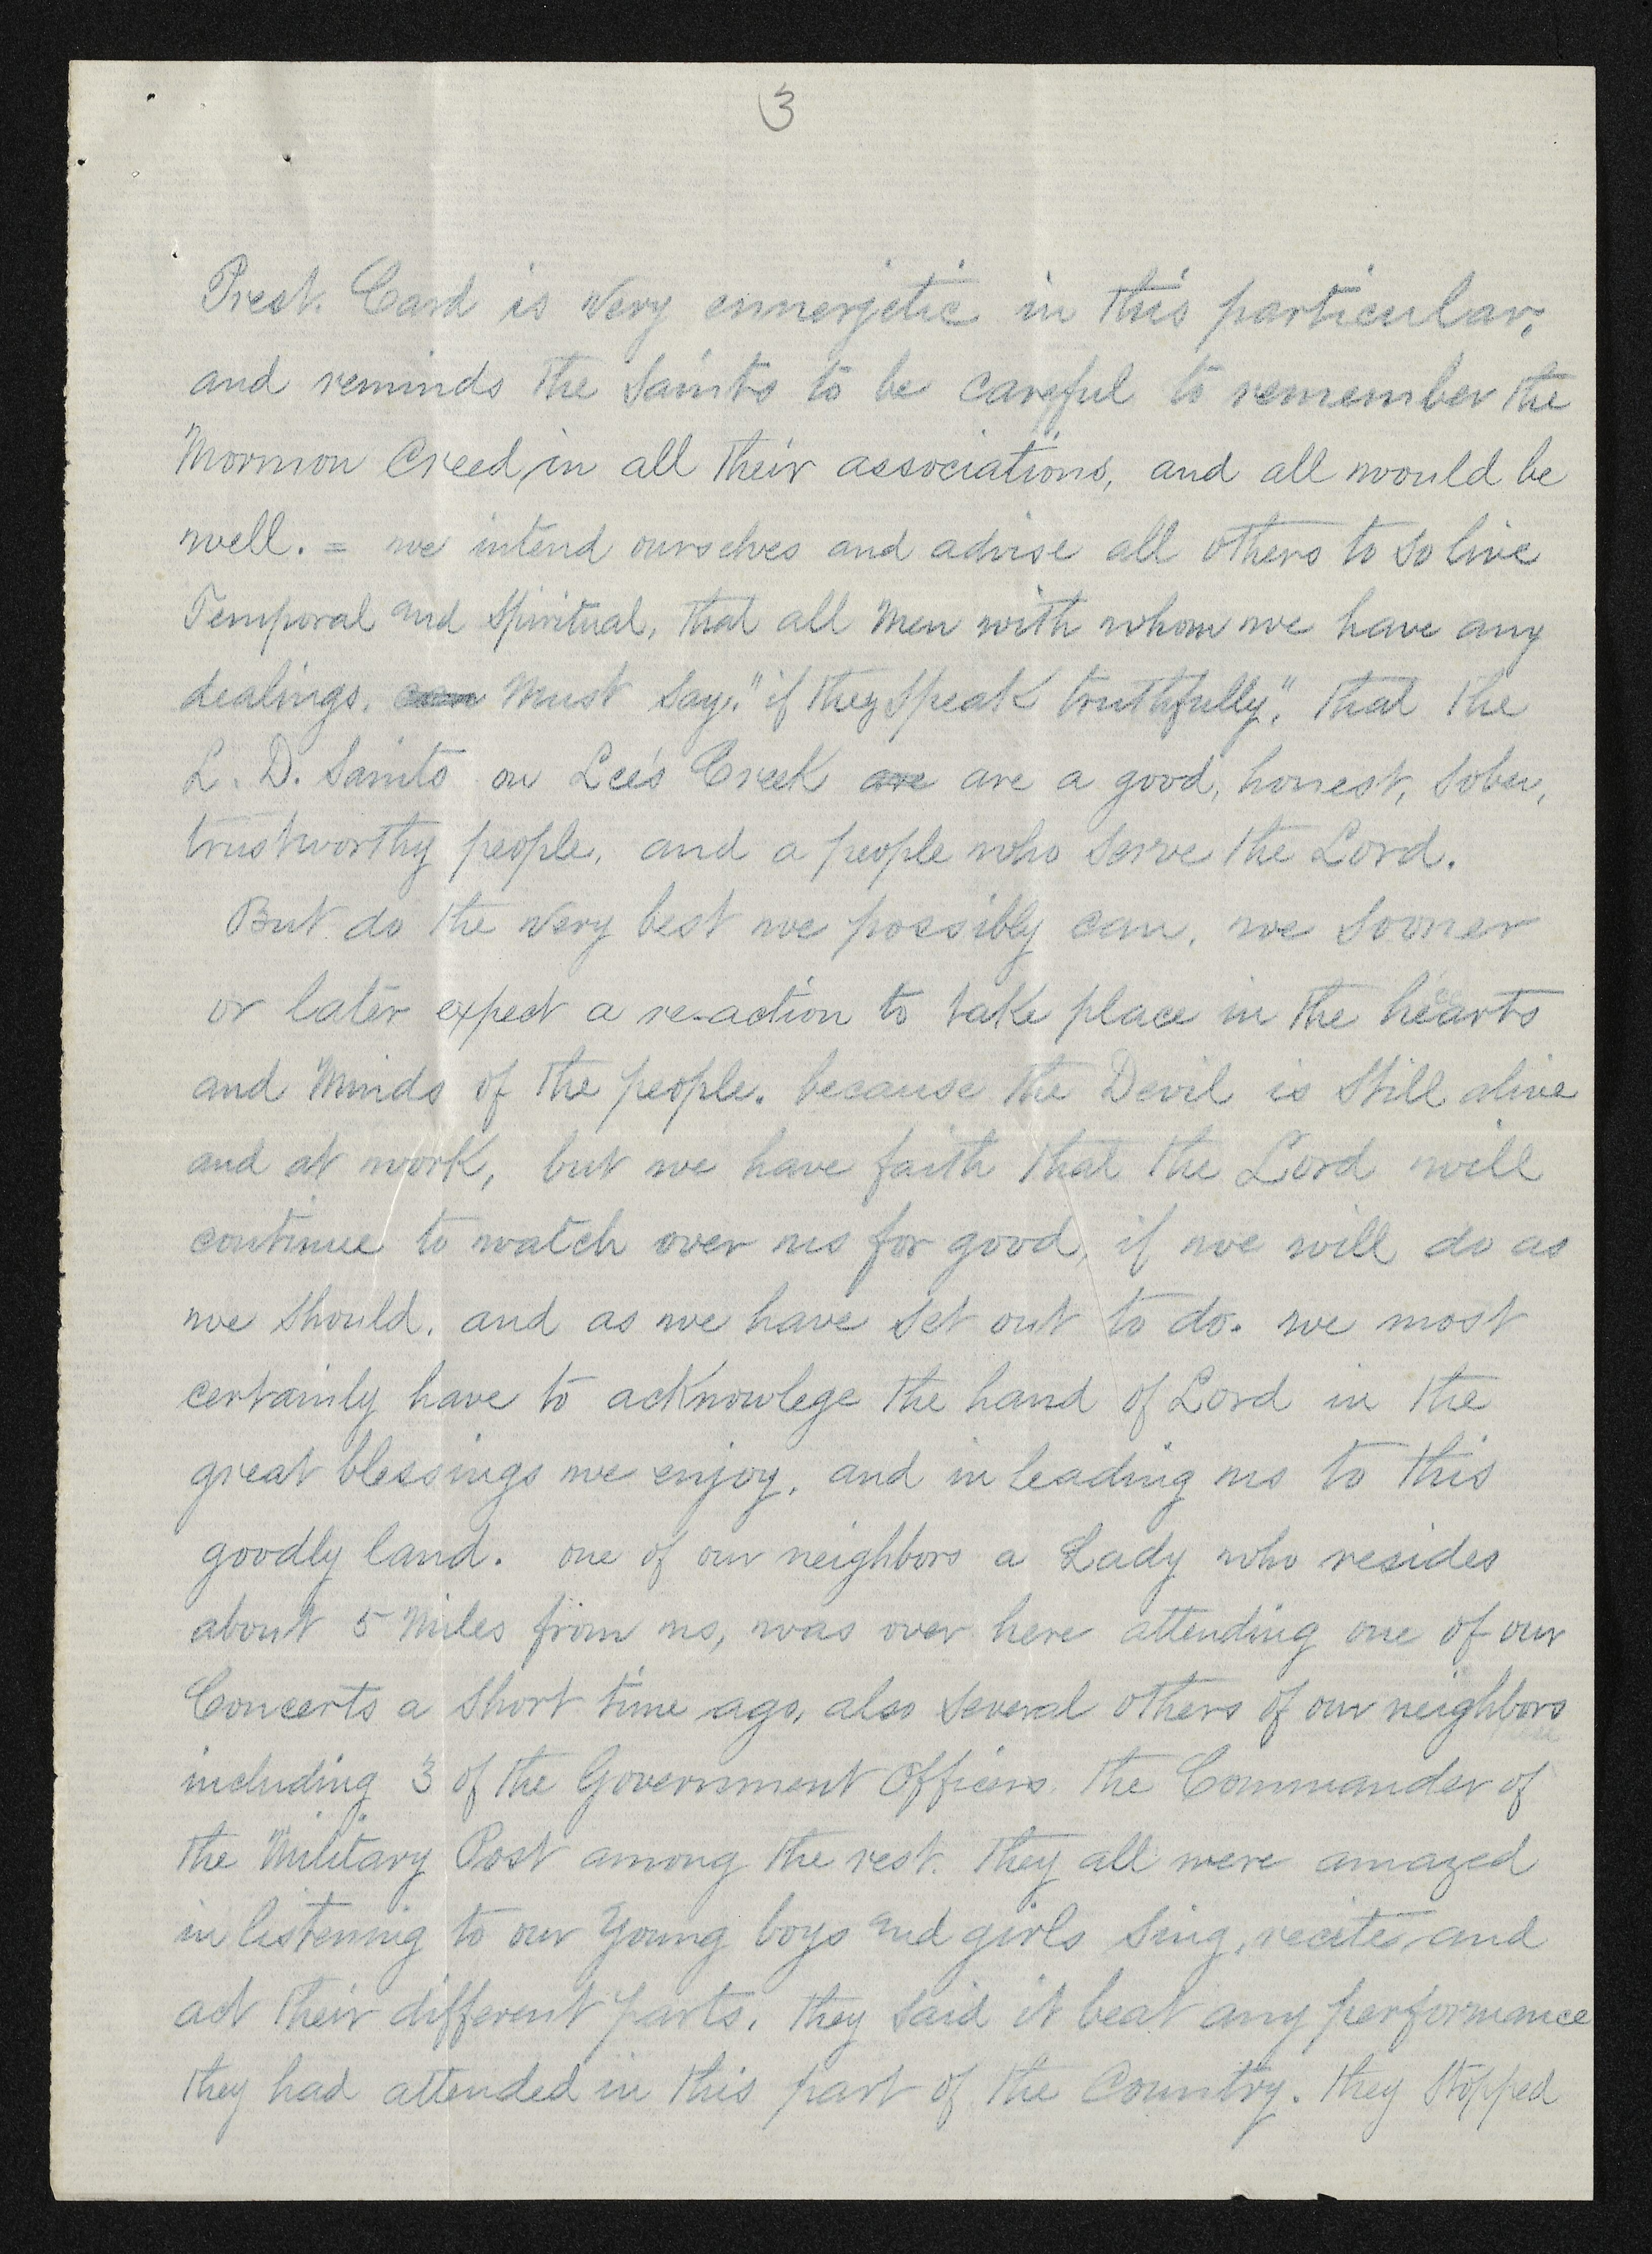 3
Prest. Card is very ennergetic in this particular,
and reminds the Saints to be careful to remember the
Mormon Creed, in all their associations, and all would be
well. = we intend ourselves and advise all others to so live
Temporal and Spiritual, that all Men with whom we have any
dealings, Must say, "if they speak truthfully," that the
L. D. Saints on Lee's Creek are are a good, honest, sober,
trustworthy people, and a people who serve the Lord.
But do the very best we possibly can, we sooner
or later expect a re-action to take place in the hearts
and Minds of the people. because the Devil is still alive
and at work, but we have faith that the Lord will
continue to watch over us for good, if we will do as
we should, and as we have set out to do. we most
certainly have to acknowlege the hand of Lord in the
great blessings we enjoy, and in leading us to this
goodly land. one of our neighbors a Lady who resides
about 5 Miles from us, was over here attending one of our
Concerts a short time ago, also several others of our neighbors
including 3 of the Government Officers the Commander of
the Military Post among the rest. they all were amazed
in listening to our Young boys and girls sing, recite, and
act their different parts, they said it beat any performance
they had attended in this part of the Country. they stopped